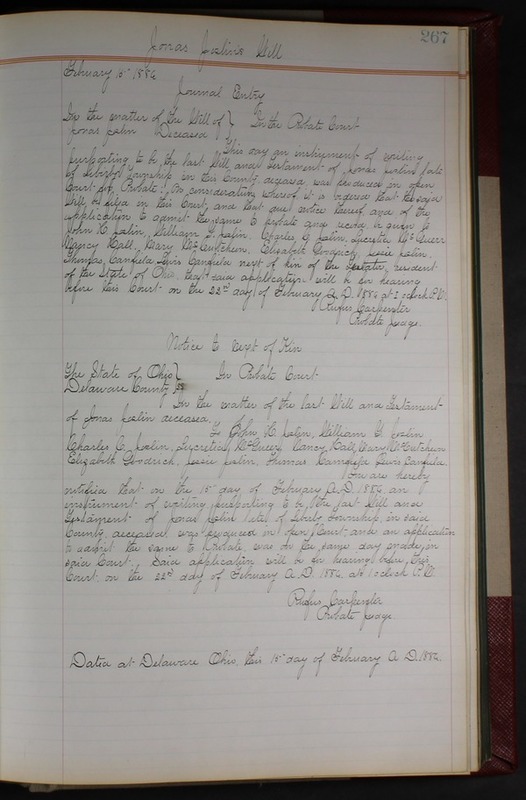 267
Jonas Joslin's Will
February 15th 1884
Journal Entry
In the matter of the Will of } In the Probate Court
Jonas Joslin Deceased
This day an instrument of writing
purporting to be the last Will and Testament of Jonas Joslin late
of Liberty Township in this County deceased was produced in open
Court for Probate. On consideration whereof it is ordered that the said
Will be filed in this Court, and that due notice thereof and of the
application to admit the same to probate and record be given to
John H. Joslin, William G. Joslin, Charles C. Joslin, Lucretia McQueen
Nancy Hall, Mary McCutchen, Elizabeth Goodrich, Jessie Joslin,
Thomas Canfield Lewis Canfield next of kin of the Testator, resident
of the State of Ohio, that said application will be for hearing
before this Court on the 22nd day of February A.D. 1884 at 1 o'clock P.M.
Rufus Carpenter
Probate Judge.
Notice to next of Kin
The State of Ohio } In Probate Court
Delaware County } ss
In the matter of the last Will and Testament
of Jonas Joslin deceased,
To John H. Joslin, William G. Joslin
Charles C. Joslin, Lucretia McQueen, Nancy Hall, Mary McCutchen
Elizabeth Goodrich, Jessie Joslin, Thomas Canfield Lewis Canfield.
You are hereby
notified that on the 15th day of February A.D. 1884, an
instrument of writing purporting to be the last Will and
Testament of Jonas Joslin late of Liberty Township, in said
County, deceased, was produced in open Court, and an application
to admit the same to Probate, was on the same day made, in
said Court. Said application will be for hearing before this
Court on the 22nd day of February A.D. 1884, at 1 o'clock P.M.
Rufus Carpenter
Probate Judge
Dated at Delaware Ohio, this 15th day of February A.D. 1884.